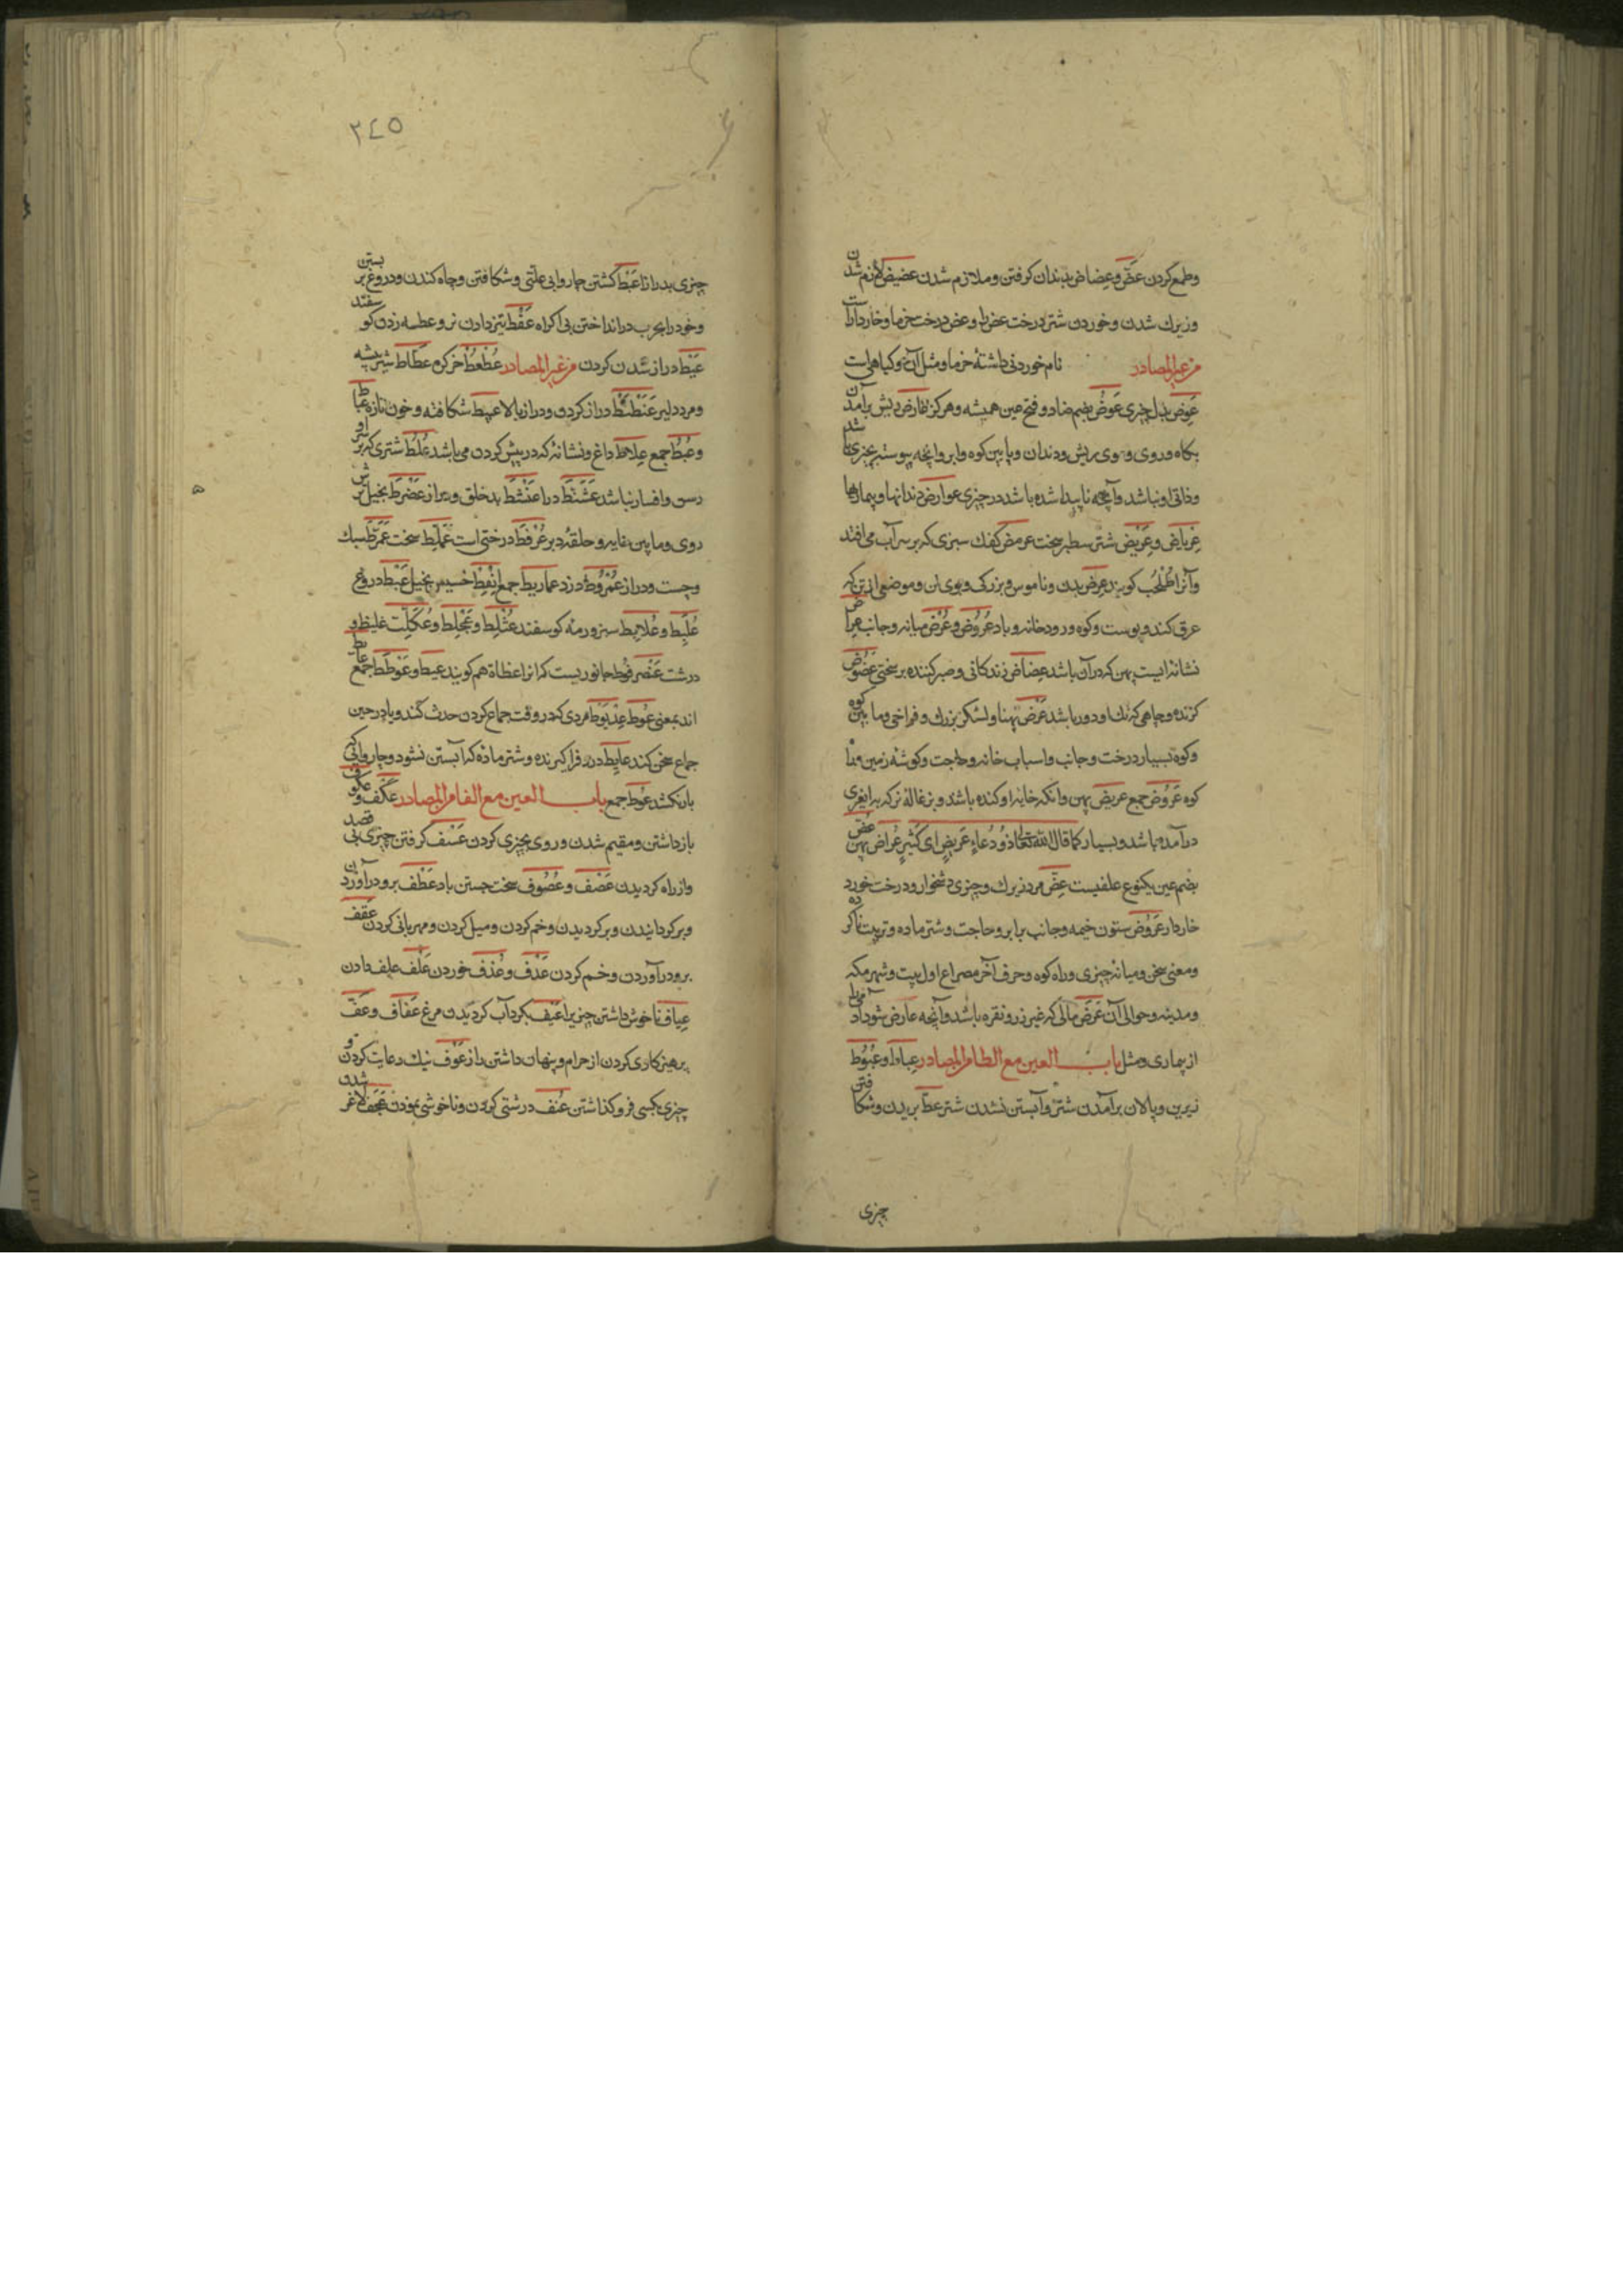 وطمع کردن عضّ وعِضاض بدندان کرفتن وملازم شدن عضیض لازم شدن
وزیرك شدن وخوردن شتر درخت عض را وعض درخت خرما وخاردارست
من غیر المصادر نام خوردنی داشتهٔ خرما ومثل آن وکیاهیست
عِوَض بدل چیزی عَوضُ بضم ضاد وفتح عین همیشه وهرکز عارض ریش برآمدن
وآنچه ناپیدا شده باشد در چیزی عوارض دندانها وبیماریها
عِرباض وعِرَیض شتر سطبر سخت عرمض کفك سبزی که بر سر آب می افتد
وآنرا طُحْلُب کویند عِرض بدن وناموس وبزرکی وبوی تن وموضعی از تن که
عرق کند وپوست وکوه ورودخانه وباد عُروُض وعُرْض میانه وجانب
نشانه ایست پهن که در آن باشد عِضاض زندکانی وصبر کننده بر سختی عَضُوض
کزنده وچاهی که تك او دور باشد عَرْض پهنا ولشکر بزرك وفراخی وما بین کوه
وکوه بسیار درخت وجانب واسباب خانه وحاجت وکوشهٔ زمین
کوه عَرُوض جمع عریض پهن وآنکه خایه او کنده باشد وبزغالهٔ نر که
درآمده باشد وبسیار کما قال الله تعالی ذُو دُعاءٍ عَریضٍ ای کَثیرٍ عُراض پهن عُضّ
بضم عین یکنوع علفیست عِضّ مرد زیرك وچیزی دشخوار ودرخت خورد
خاردار عَرُوض ستون خیمه وجانب برابر وحاجت وشتر ماده
ومعنی سخن ومیانهٔ چیزی وراه کوه وحرف آخر مصراع اول بیت وشهر مکه
ومدینه وحوالی آن عَرَض مالی که غیر زر ونقره باشد وآنچه عارض شود آدمی را
از بیماری ومثل باب العین مع الطا من المصادر عِباط وعُبُوط
زیرین وپالان برآمدن شتر وآبستن نشدن شتر عطّ بریدن وشکافتن
چیزی
٢٤٥
چیزی بدرازا عَبْط کشتن چاروا بی علتی وشکافتن وچاه کندن ودروغ بر بستن
وخود را بحرب در انداختن بی اکراه عَفْط تیز دادن بز وعطسه زدن کوسفند
عَیَط دراز شدن کردن من غیر المصادر عُطْعُط خر کره عطاط شیر بیشه
ومرد دلیر عَنَطْنَط دراز کردن ودراز بالا عبیط شکافته وخون تازه عِباط
وعُبُط جمع عِلاط داغ ونشانهٔ که در پیش کردن می باشد عُلُط شتری که بر سر او
رسن وافسار نباشد عَشَنَّط دراز عَنْشَط بدخلق ودراز عَضْرَط بخیل
روی وما بین خایه وحلقهٔ دبر عُرْفُط درختی است عَمَلَّط سخت عَمَرَّط سبك
وچست ودراز عُمْرُوط دزد عماریط جمع عِنْفِط خسیس وبخیل عَبْط دروغ
عُلَبِط وعُلابِط سبز ورمهٔ کوسفند عُثَلِط وعُجَلِط وعُکَلِط غلیظ و
درشت عَضْرَفُوط جانوریست که آنرا عظاة هم کویند عیط وعُوطَط جمع عایط
اند بمعنی عُوط عِذْیَوْط مردی که در وقت جماع کردن حدث کند ویا در حین
جماع سخن کند عایط درد فرا کیرنده وشتر ماده که آبستن نشود وچاروائی که
بار نکشد عوط جمع باب العین مع الفا من المصادر عَکْف وعکوف
بازداشتن ومقیم شدن وروی بچیزی کردن عَسْف کرفتن چیزی بی قصد
واز راه کردیدن عَصْف وعُصُوف سخت جستن باد عَطْف برو درآوردن
وبر کردانیدن وبر کردیدن وخم کردن ومیل کردن ومهربانی کردن عَقْف
برو درآوردن وخم کردن عَدْف وعَذْف خوردن عَلْف علف دادن
عِیاف ناخوش داشتن چیزی را عَیف بکرد آب کردیدن مرغ عَفاف وعَفّ
پرهیزکاری کردن از حرام وپنهان داشتن راز عَوْف نیك رعایت کردن و
چیزی بکسی فرو کذاشتن عُنف درشتی کردن وناخوشی نمودن عَجَف لاغر شدن